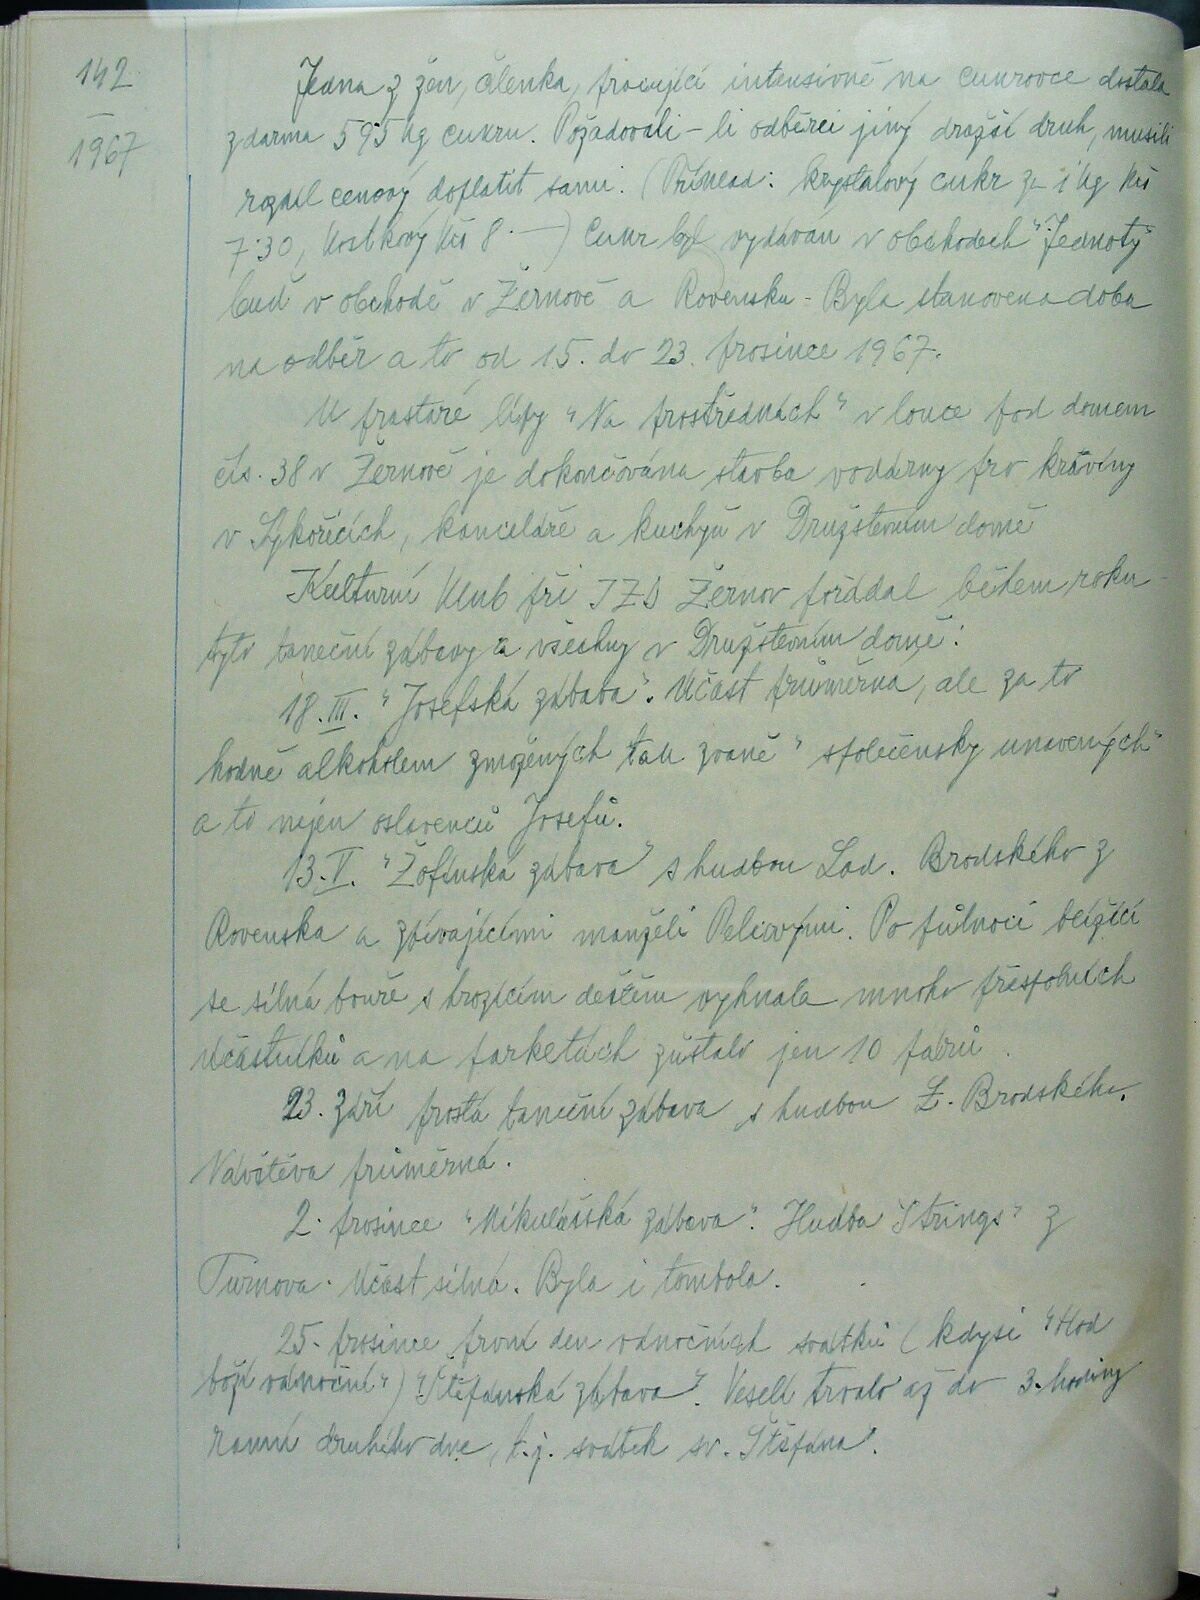 142
—
1967
Jedna z žen, členka, pracující intensivně na cukrovce dostala
zdarma 595 kg cukru. Požadovali-li odběrci jiný dražší druh, musili
rozdíl cenový doplatit sami. (Příklad: krystalový cukr za 1 kg Kčs
7·30, kostkový Kčs 8·—) Cukr byl vydáván v obchodech "Jednoty"
buď v obchodě v Žernově a Rovensku - Byla stanovena doba
na odběr a to od 15. do 23. prosince 1967.
U prastaré lípy "Na prostředních" v louce pod domem
čís. 38 v Žernově je dokončována stavba vodárny pro kravíny
v Sýkořicích, kanceláře a kuchyň v Družstevním domě
Kulturní klub při JZD Žernov pořádal během roku
tyto taneční zábavy a všechny v Družstevním domě:
18. III. "Josefská zábava". Účast průměrná, ale za to
hodně alkoholem zmožených tak zvaně "společensky unavených"
a to nejen oslavenců Josefů.
13. V. "Žofínská zábava" s hudbou Lad. Brodského z
Rovenska a zpívajícími manželi Pelcovými. Po půlnoci blížící
se silná bouře s hrozícím deštěm vyhnala mnoho přespolních
účastníků a na parketách zůstalo jen 10 párů.
23. září prostá taneční zábava s hudbou L. Brodského.
Návštěva průměrná.
2. prosince "Mikulášská zábava". Hudba "Strings" z
Turnova. Účast silná. Byla i tombola.
25. prosince první den vánočních svátků (kdysi "Hod
boží vánoční") "Štěpánská zábava". Veselí trvalo až do 3. hodiny
ranní druhého dne, t.j. svátek sv. Štěpána".